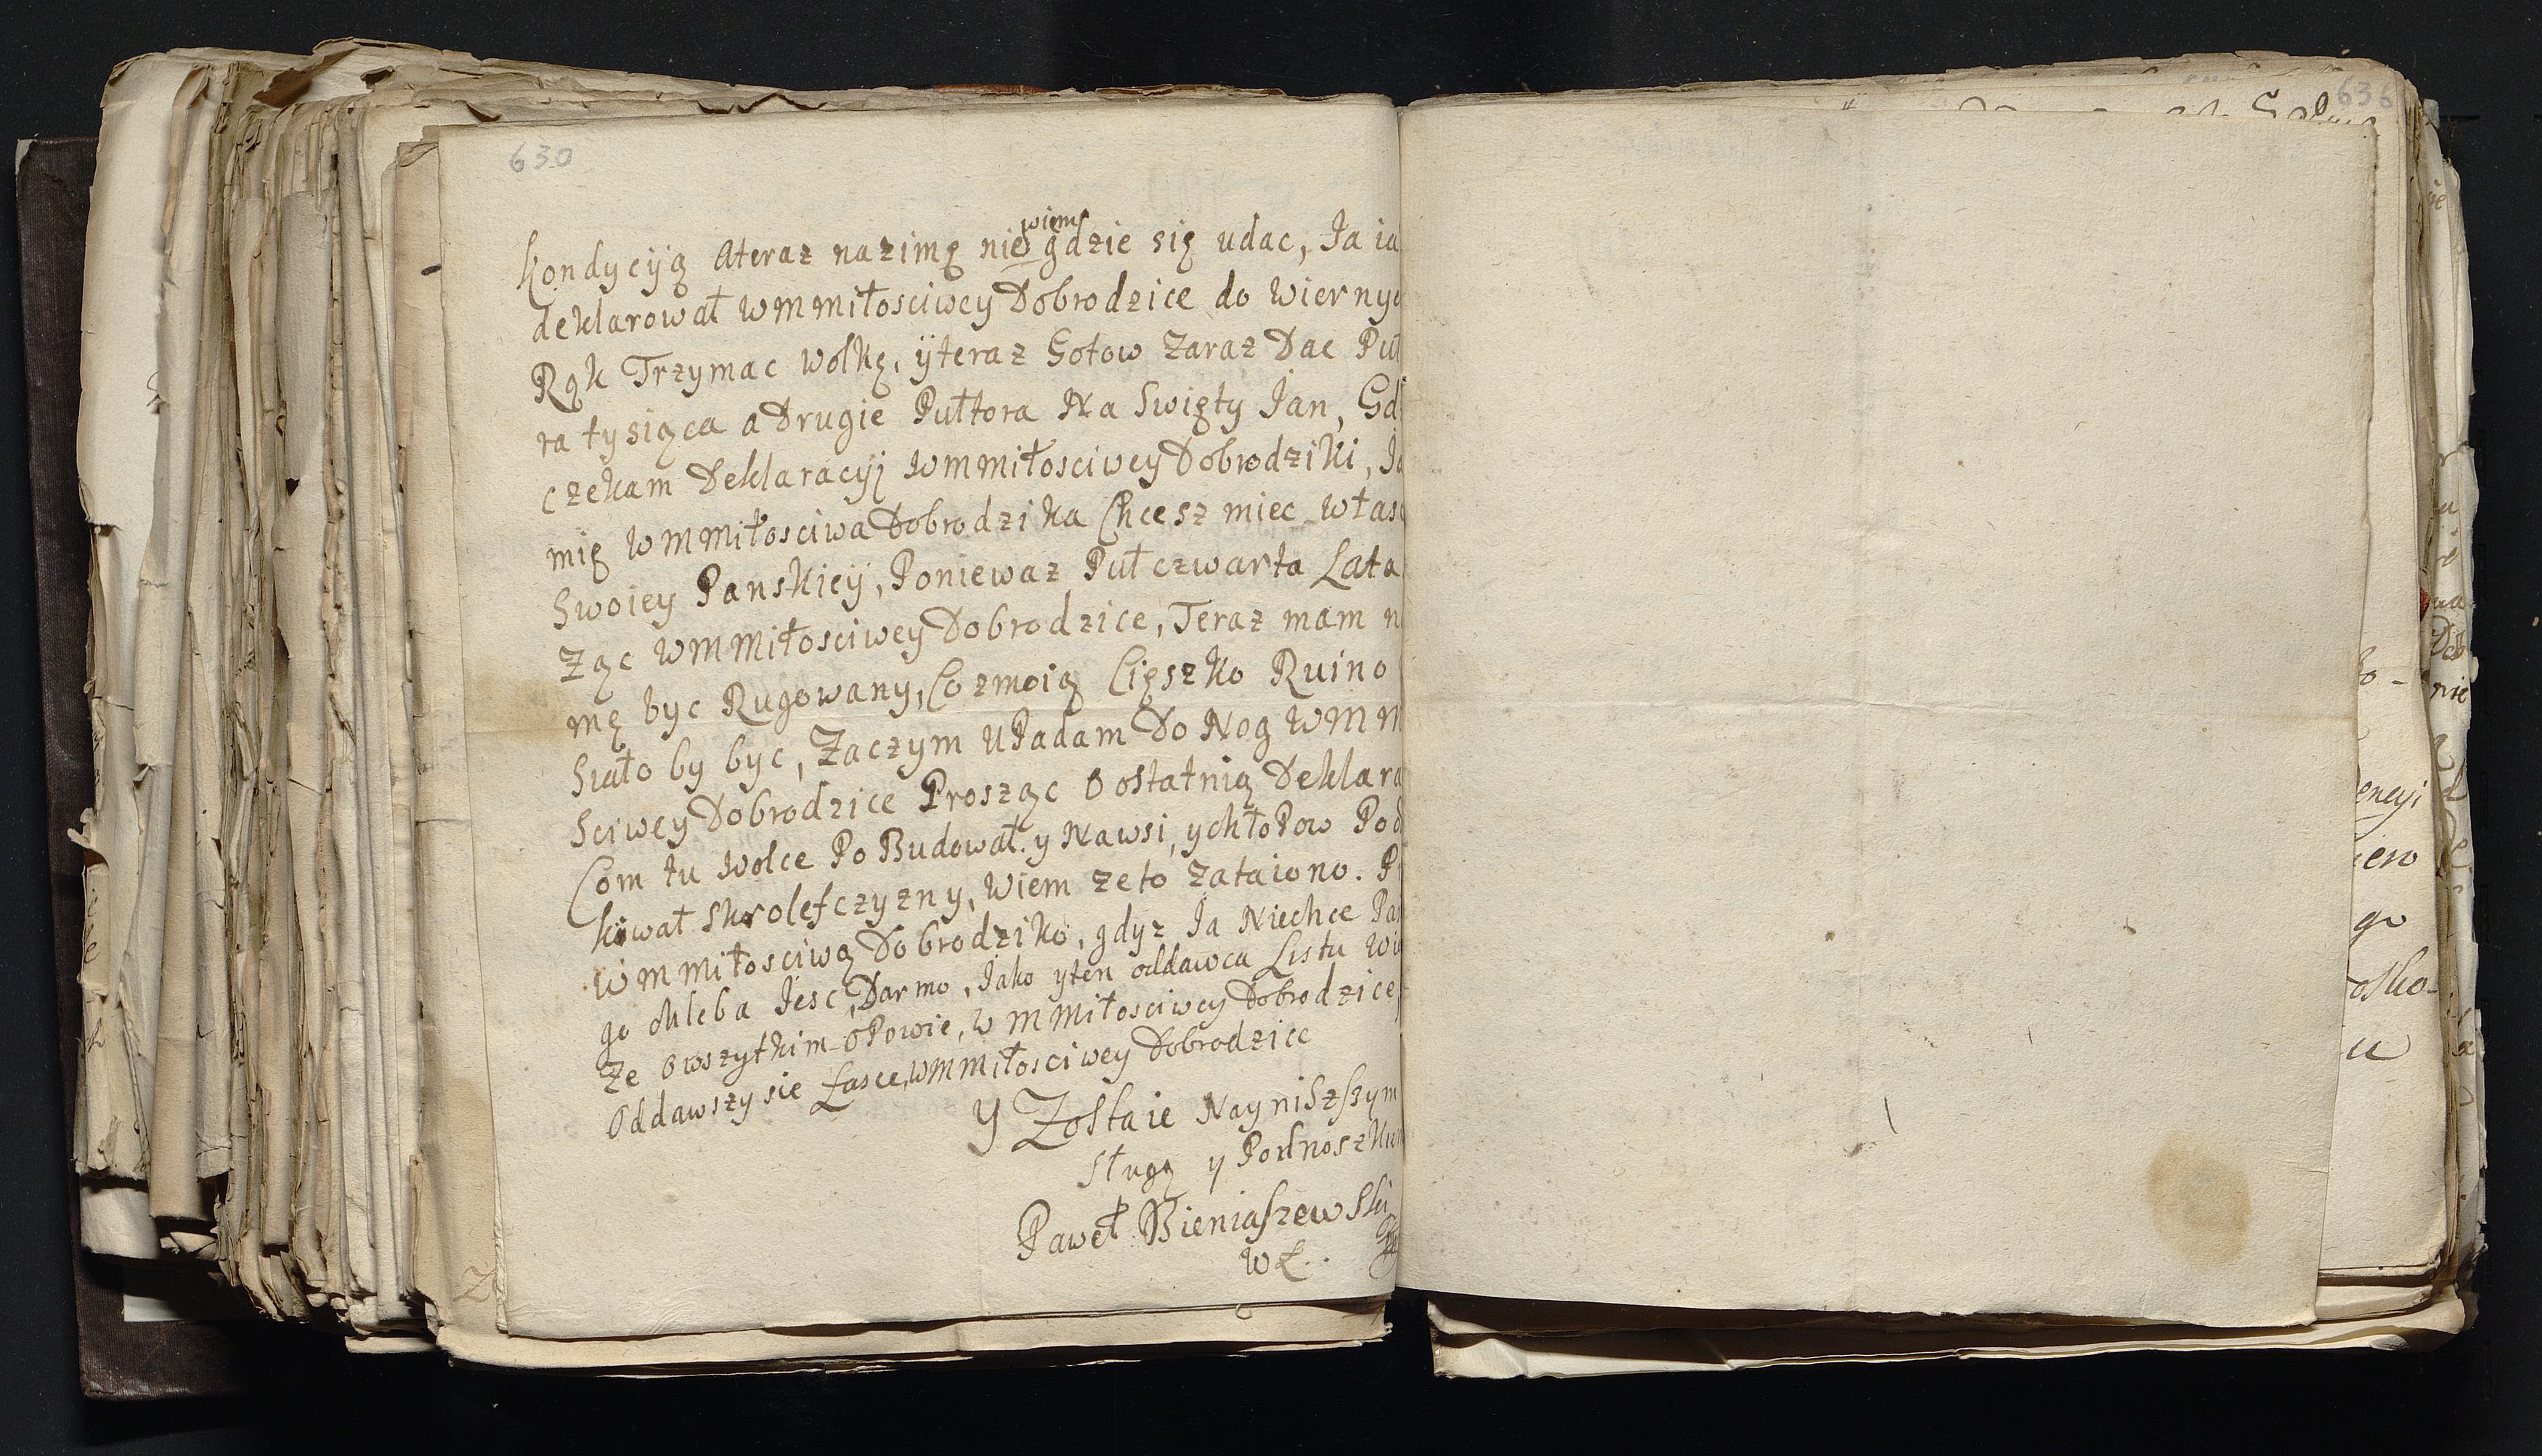 630
636
wiem
kondycyją Ateraz nazimę nie gdzie się udac, Ja ia
deklarował wmmiłosciwey Dobrodzice do wierny
Rąk Trzymac wolkę, ÿteraz Gotow zaraz Dac Puł
ra tysiąca a Drugie Pułtora Na Swięty Jan, Gd
czekam Deklaracyj wmmiłosciwey Dobrodziki, Ja
mię wmmiłosciwa Dobrodzika Chcesz miec włas
Swoiey Panskieÿ, Poniewaz Puł czwarta Lata
Ząc wmmiłosciwey Dobrodzice, Teraz mam n
mę byc Rugowany, Co zmoią Cięszko Ruino
Siało by byc, Zaczym uPadam Do Nog WMM
Sciwey Dobrodzice Prosząc O ostatnią Deklara
Com tu wolce Po Budował. y Nawsi, ychłoPow Pod
kiwał skrolefczyzny, Wiem zeto zataiono. P
wmmiłosciwą Dobrodziko, gdyz Ja Niechce Pa
go chleba Jesc Darmo, Jako yten oddawca Listu
Ze owszytkim oPowie, wmmiłosciwey Dobrodzice
Oddawszy sie Łasce, wmmiłosciwey Dobrodzice
Y Zostaie Nayniszszym
Sługą y Podnoszkie
Paweł Bieniaszewski
WŁ..
encyi
go